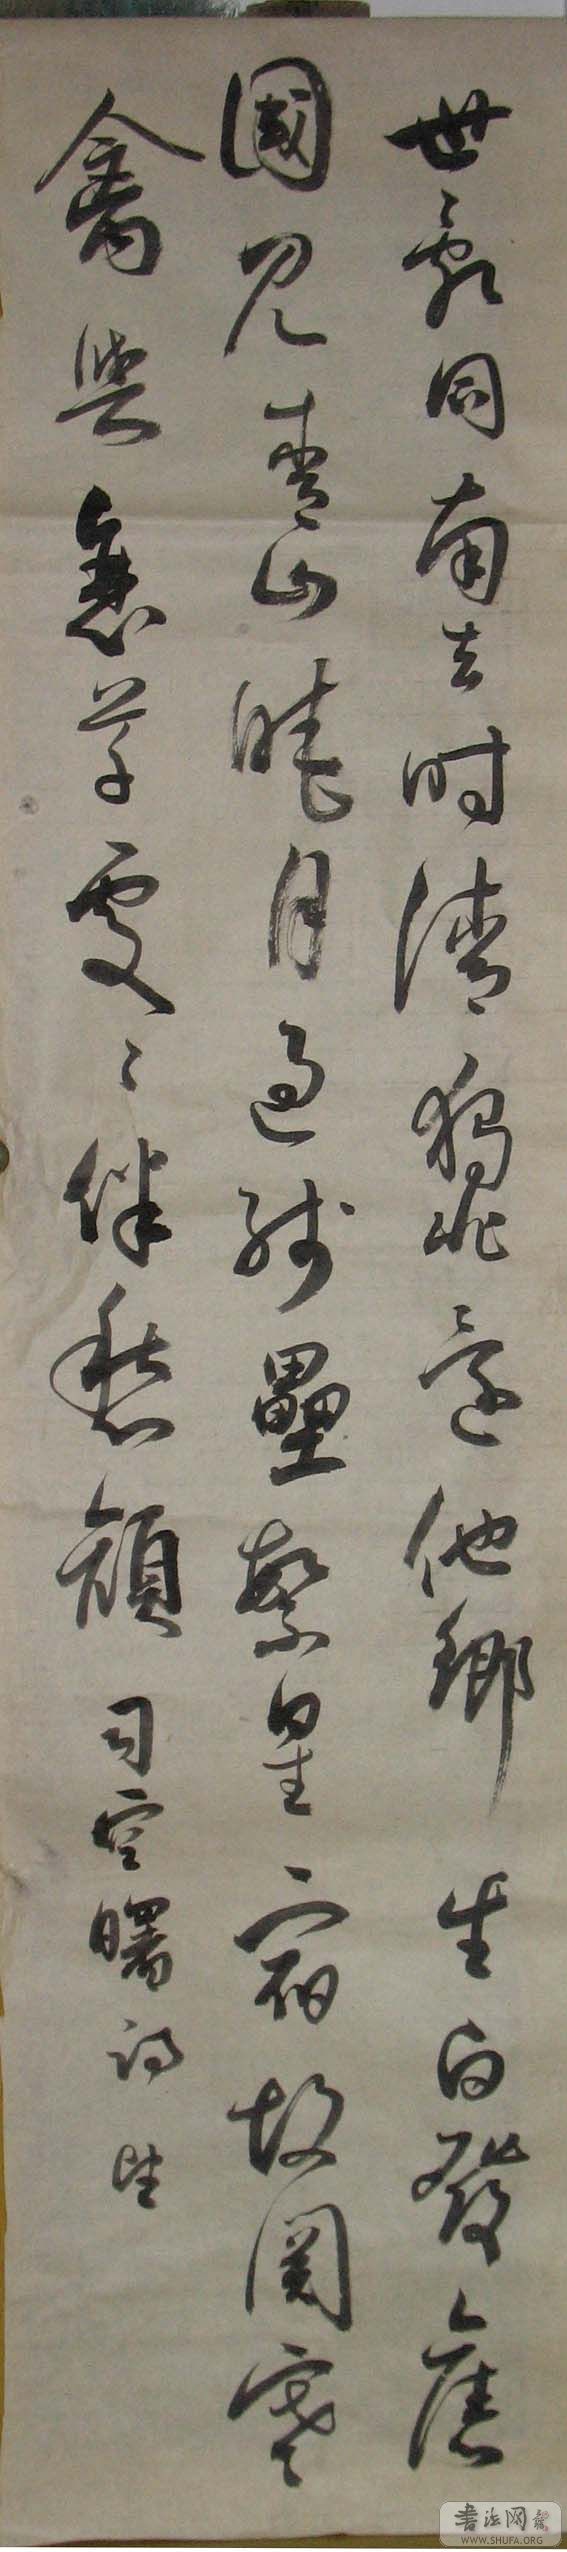 世亂同南去时清獨北還他鄉生白發舊
國見青山曉月過殘壘繁星宿故關寒
禽與衰草處々伴愁顏 司空曙詩
書法网
WWW.SHUFA.ORG